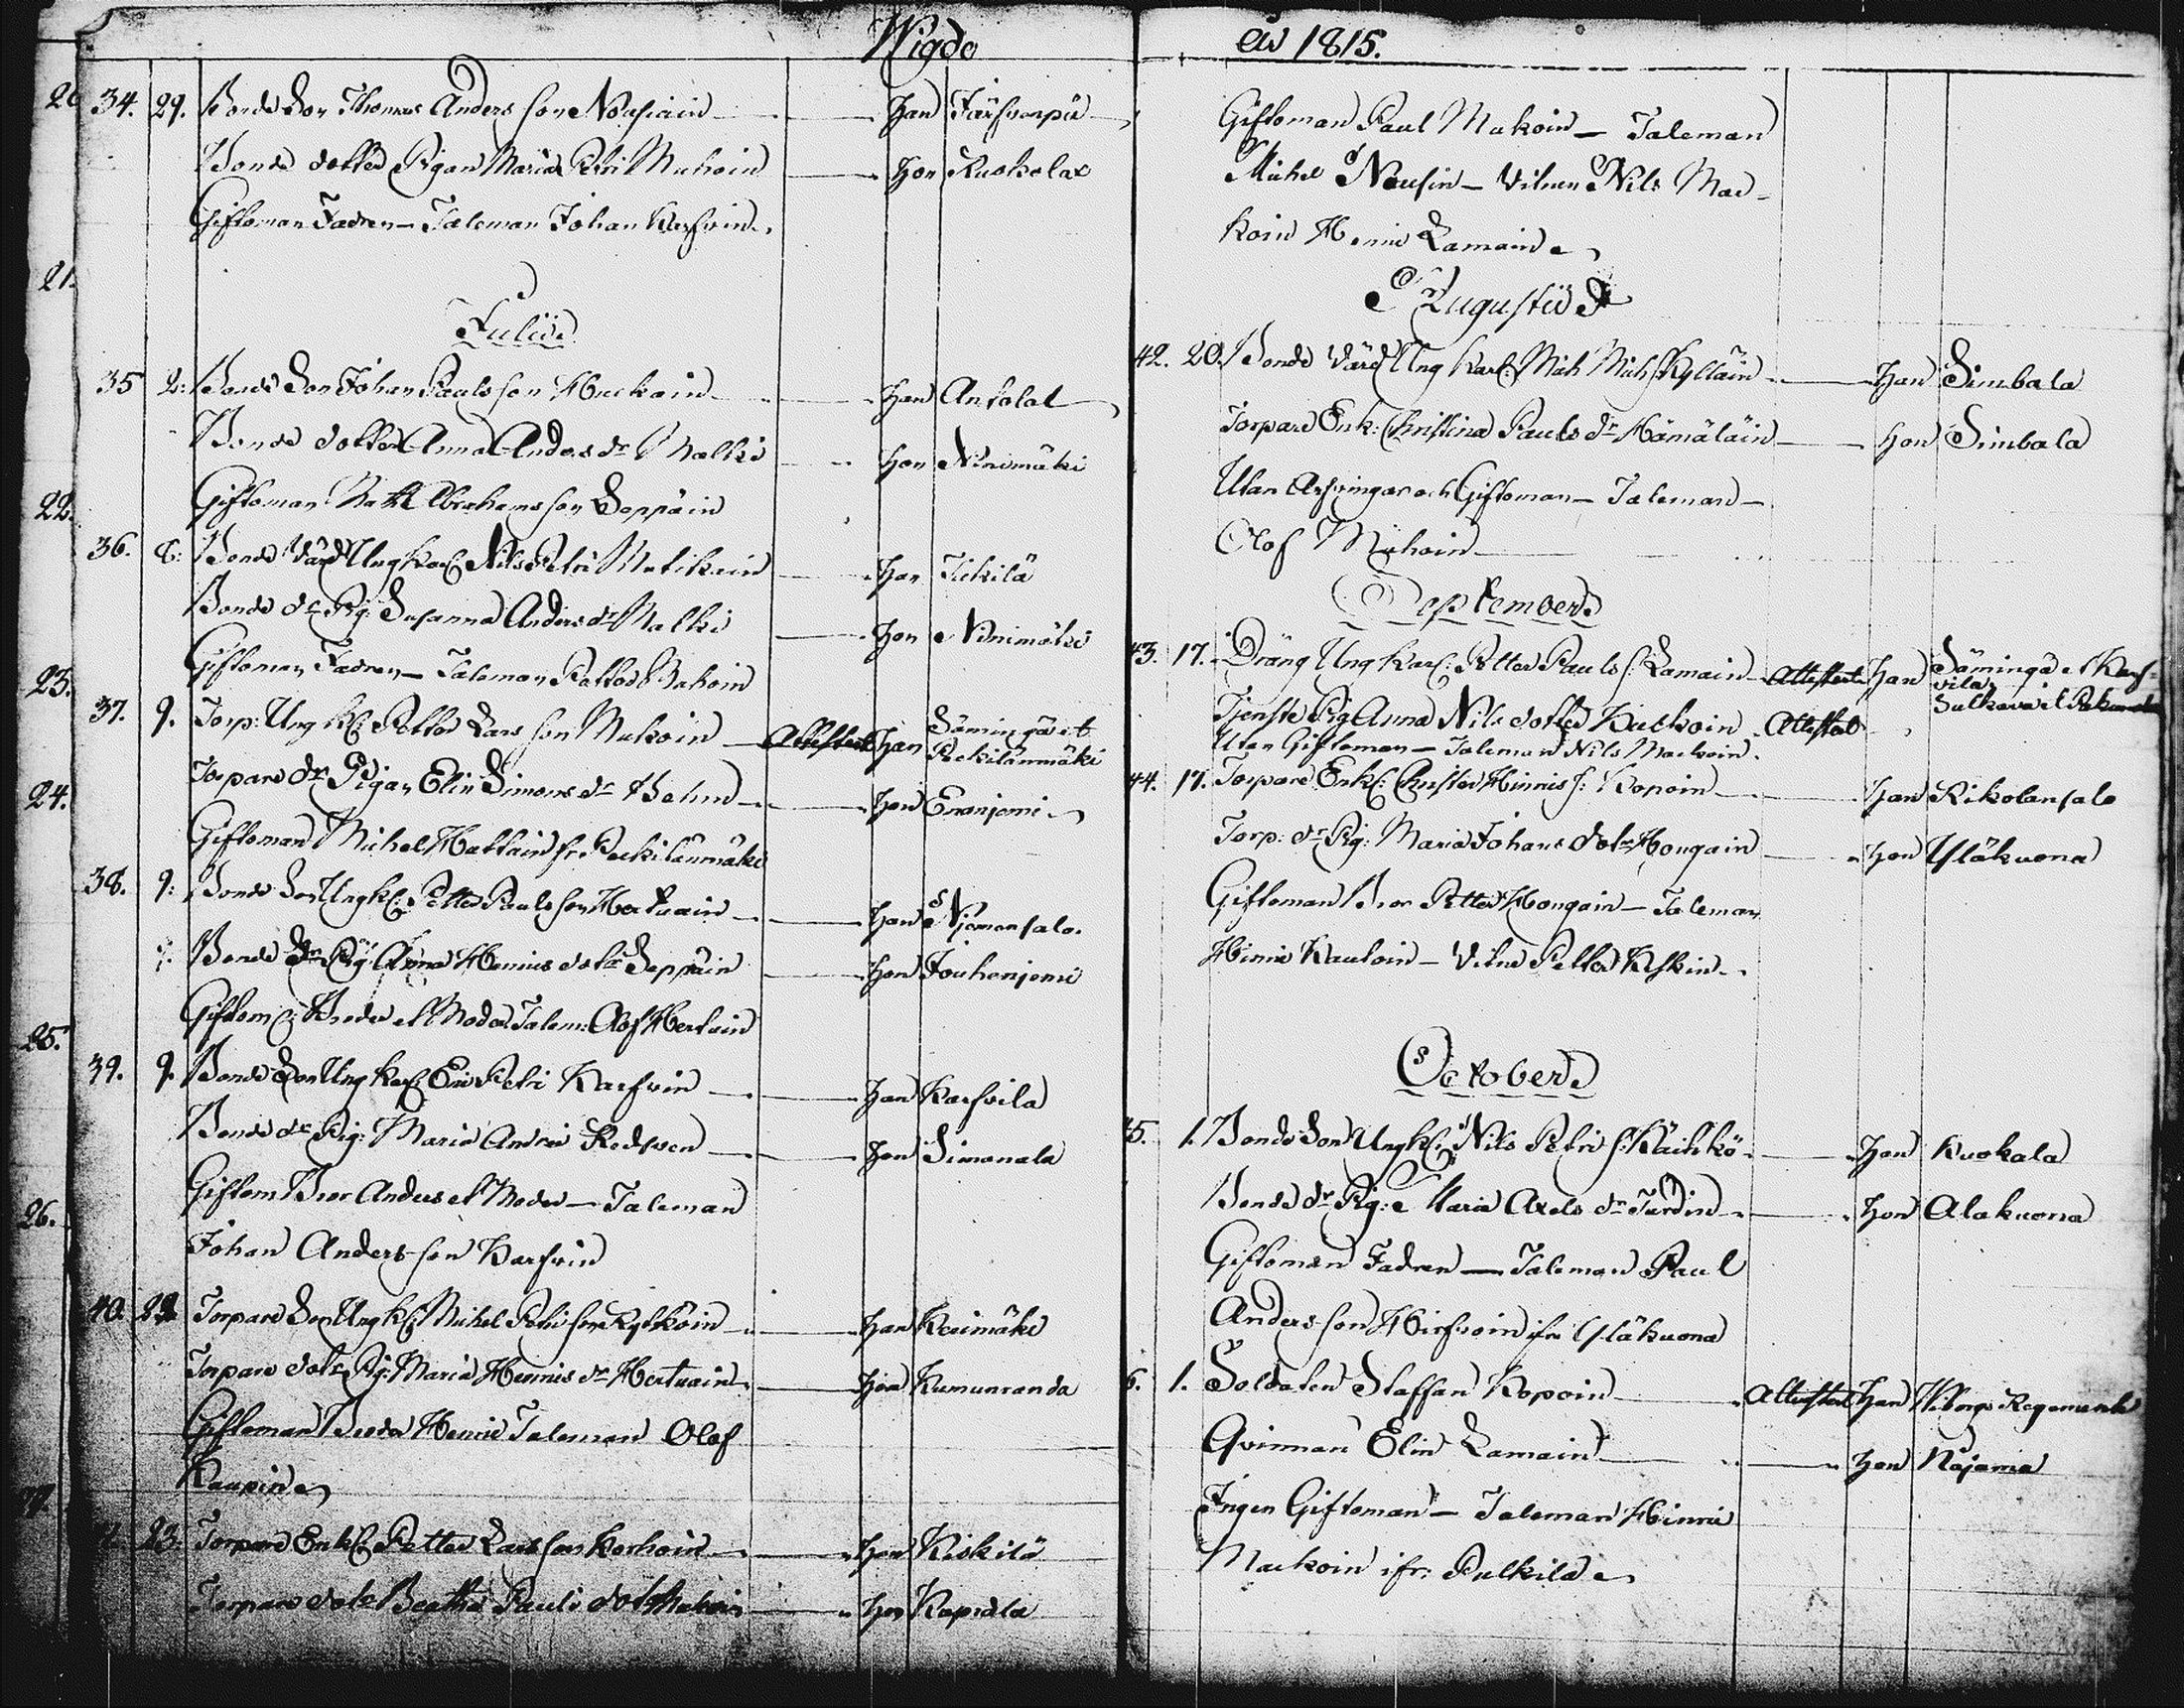 Wigde
34. 29. Bonde Son Thomas Anders son Nousiain Han
Bonde dotter Pigan Maria Petri Muhoin Hon Ruokolax
Giftoman Fadren — Taleman Johan Karfvin
Julii
35 2: Bonde Son Johan Pauls son Huckain Han Antolal
Bonde dotter Anna Anders dr Malki Hon Ninimäki
Giftoman Math Abrahams son Seppäin
36. 8: Bonde Värd Ung Karl Nils Petri Matikain Han Tickilä
Bonde dr Pig: Susanna Anders dr Malki Hon Ninimäki
Giftoman Fadren — Taleman Petter
37. 9. Torp: Ung Kl Petter Lars son Mukoin Attesterat Han Sämingä et Peckilänmäki
Torpare dr Pigan Elin Simons dr Hon Enanjemi
Giftoman Michel Hattain fr Peckilänmäki
38. 9: Bonde Son Ung kl: Petter Pauls son Hertuain Han
Bonde dr Pig Anna Henrics dotr Seppäin Hon Jouhenjemi
Giftom: Broder et Moder Talem: Olof Hertuain
39. 9. Bonde Son Ung Karl Eric Petri Karfvin Han Karfvila
Bonde dr Pig: Maria Andrei Hon Simanala
Giftom Bror Anders et Moder — Taleman
Johan Anders son Karfvin
40. Torpare Son Ung kl Michel Petri son Rytköin Han Kerimäki
Torpare dotr Pig: Maria Henrics dr Hertuain Hon Kumunranda
Giftoman Broder Henric Taleman Olof
Kaupin
23: Torpare Enkl: Petter Lars son Korhoin Han Kiskilä
Torpare dotr Beatha Pauls dotr Hon
20
21.
22.
23.
24.
25.
26.
27.
1815.
Giftoman Paul Mukoin — Taleman
Michel Nousin — Vitnen Nils Mac-
koin Henric Lamain
Augustii
42. 20. Bonde Värd Ung Karl Mich Mich s Kylläin Han Simbala
Torpare Enk: Christina Pauls dr Hämäläin Hon Simbala
Utan Arfvingar och Giftoman — Taleman —
Olof Muhoin
September
43. 17. Dräng Ung Karl: Petter Pauls s: Lamain Attesterat Han Säminge et Karf-
vila
Tjenste Pig Anna Nils dotter Huckoin Attesterat Sulkava et
Utan Giftoman — Taleman Nils Mackoin
44. 17. Torpare Enkl: Christer Hinrics s: Kopoin Han Rikolansalo
Torp: dr Pig: Maria Johans dotr Hougain Hon Yläkuona
Giftoman Bror Petter Hougain — Taleman
Hinric Kauloin — Vitne Petter
October
45. 1. Bonde Son Ung kl: Nils Petri s: Käihkö Han Kuokala
Bonde dr Pig: Maria Axels dr Turdin Hon Alakuona
Giftoman Fadren — Taleman Paul
Anders son Hirfvoin ifr Yläkuona
6. 1. Soldaten Staffan Kopoin Attesterat Han Wiborgs Regemente
Qvinnan Elin Lamain Hon Rajama
Ingen Giftoman — Taleman Hinric
Mackoin ifr: Pulkila